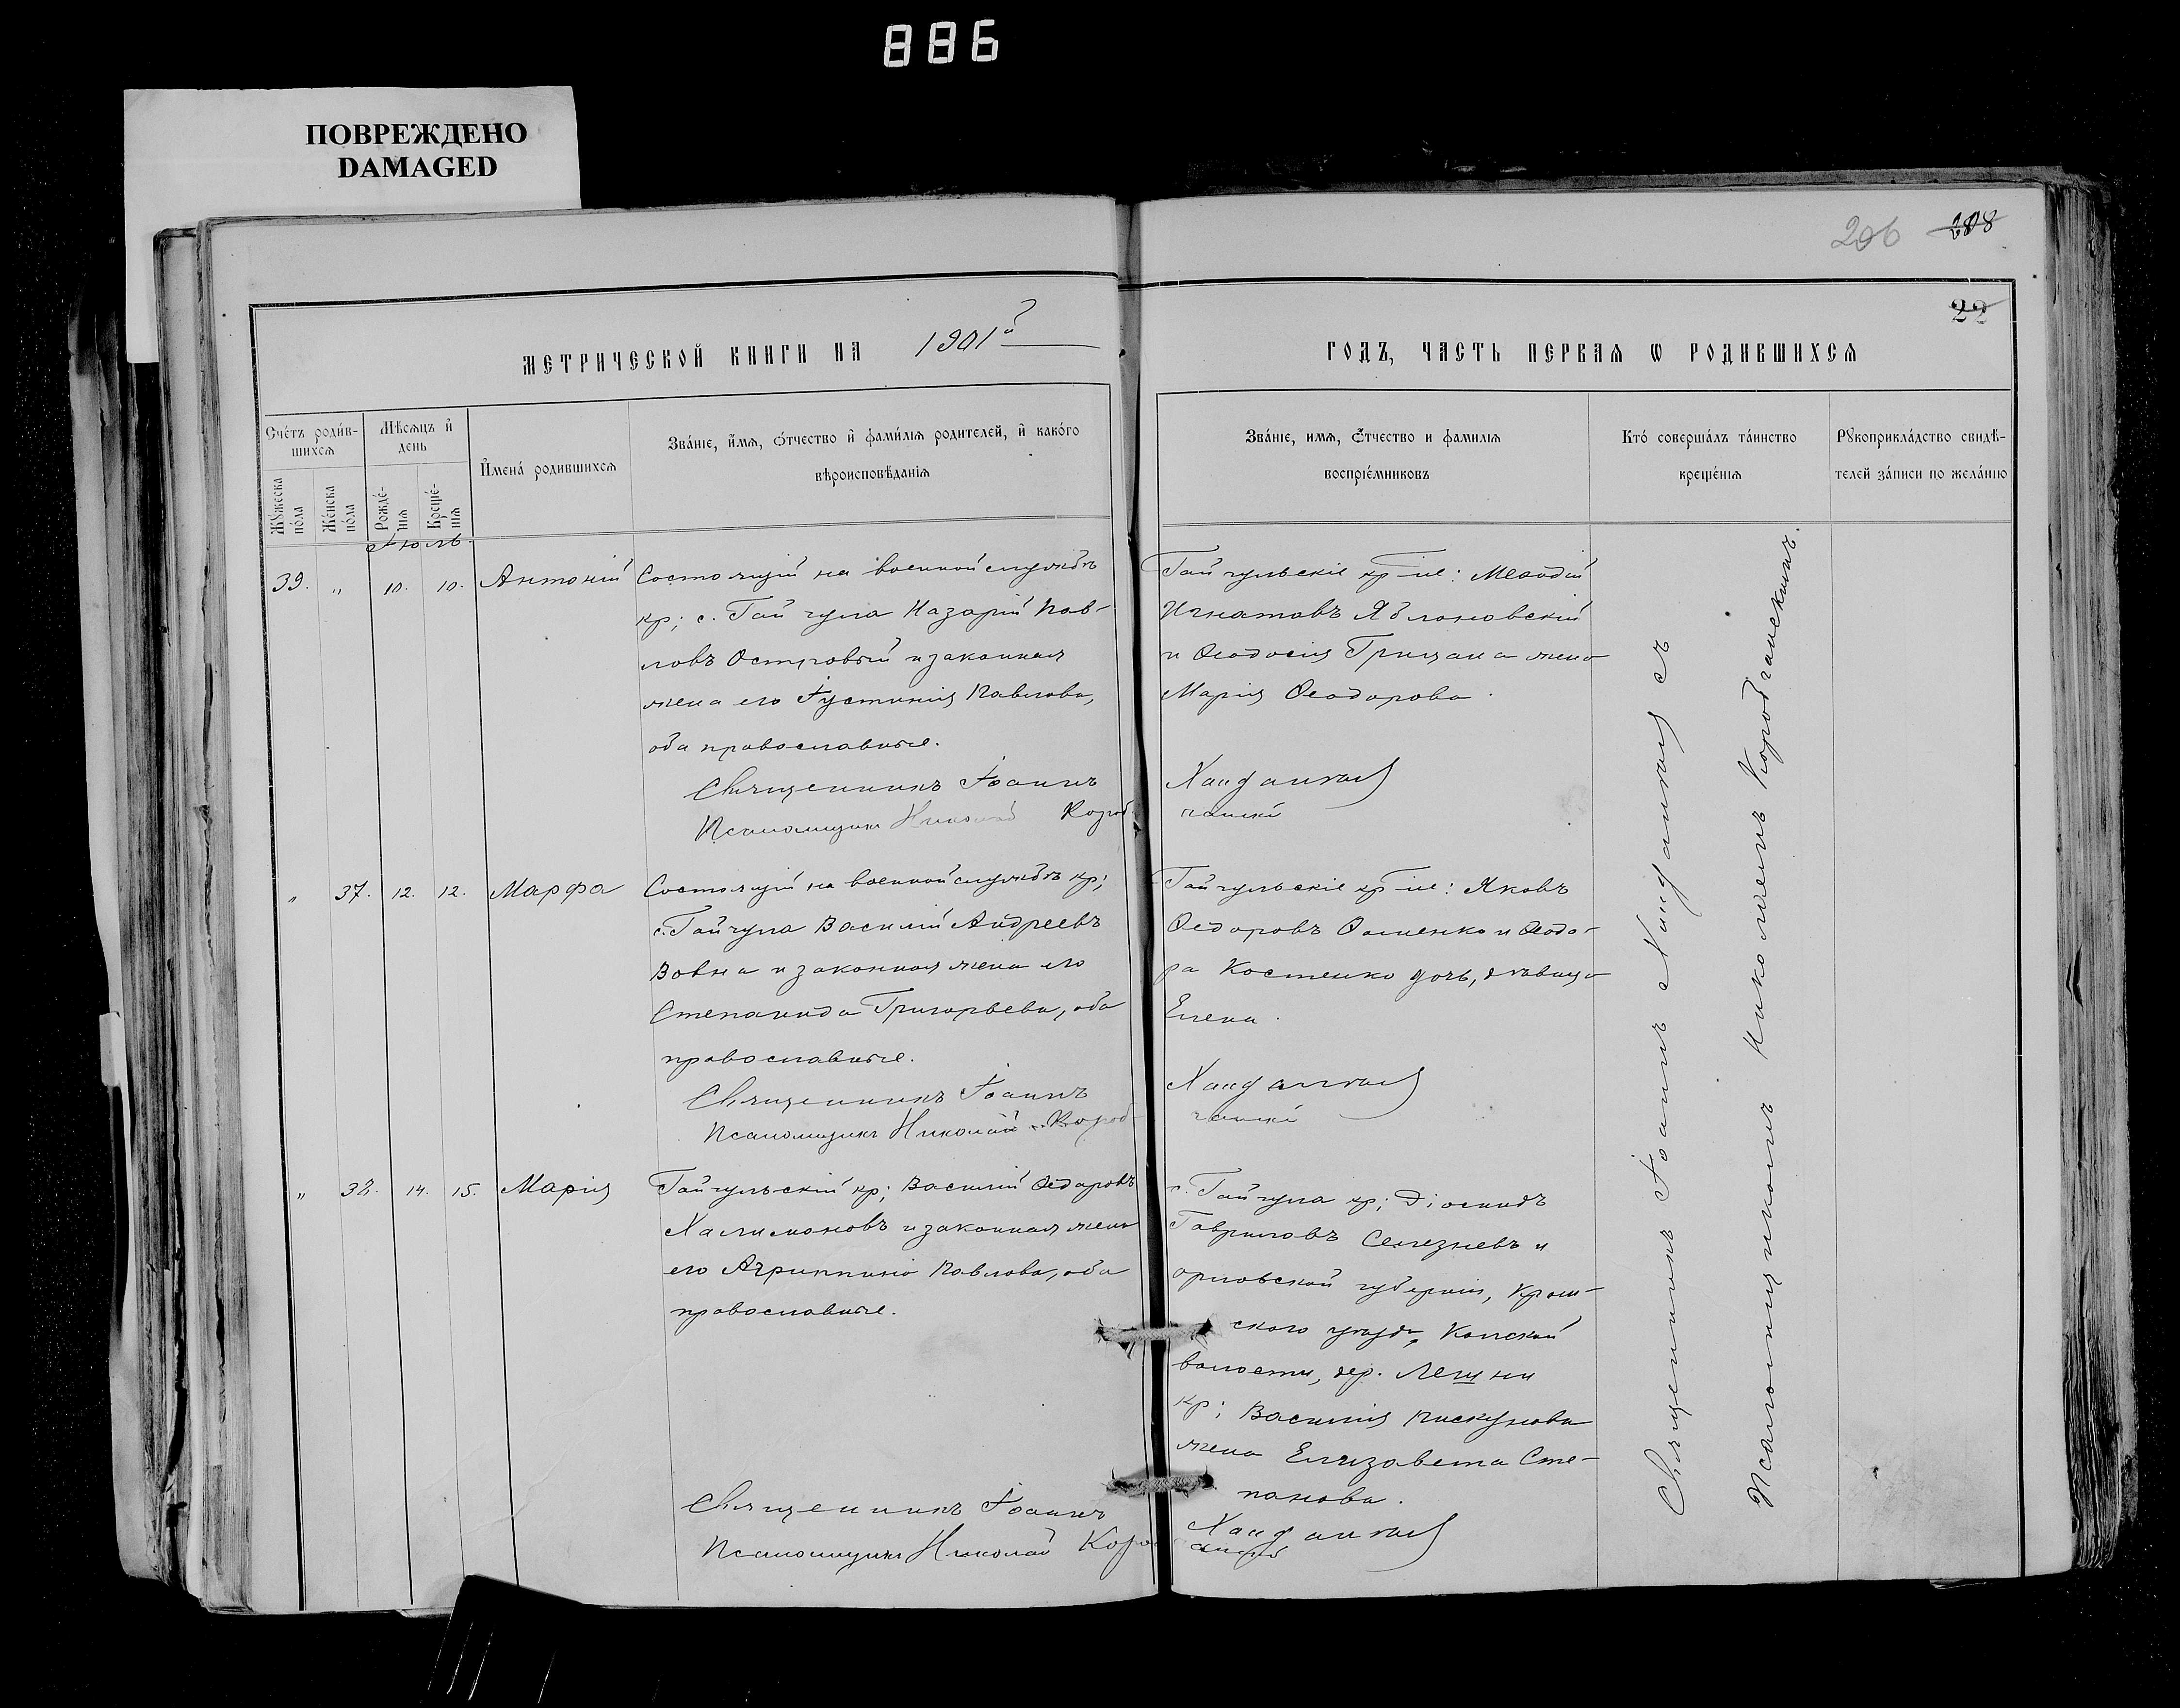 886
ПОВРЕЖДЕНО
DAMAGED
206 208
22
МЕТРИЧЕСКОЙ КНИГИ НА 1901й
ГОДЪ, ЧАСТЬ ПЕРВАЯ Ѡ РОДИВШИХСЯ
Счетъ родившихся
Мѣсяцъ и день
Имена родившихся
Званіе, имя, отчество и фамилія родителей, и какого
вѣроисповѣданія
Мужеска пола
Женска пола
Рожденія
Крещенія
Званіе, имя, отчество и фамилія
воспріемниковъ
Кто совершалъ таинство
крещенія
Рукоприкладство свидѣ-
телей записи по желанію
Іюль.
39. " 10. 10. Антоній Состоящій на военной службѣ
кр; с. Гайчула Назарій Пав-
ловъ Островый и законная
жена его Іустинія Павлова,
оба православные.
Священникъ Іоаннъ
Псаломщикъ Николай Короб-
Гайчульскіе кр-не: Меѳодій
Игнатовъ Яблоновскій
и Ѳеодосія Грицана жена
Марія Ѳеодорова.
" 37. 12. 12. Марфа Состоящій на военной службѣ кр;
с. Гайчула Василій Андреевъ
Вовна и законная жена его
Степанида Григорьева, оба
православные.
Священникъ Іоаннъ
Псаломщикъ Николай Короб-
Гайчульскіе кр-не: Яковъ
Ѳедоровъ Ѳоменко и Ѳеодо-
ра Костенко дочь, дѣвица
Елена.
" 38. 14. 15. Марія Гайчульскій кр; Василій Ѳедоровъ
Халимоновъ и законная жена
его Агриппина Павлова, оба
православные.
Священникъ Іоаннъ
Псаломщикъ Николай Коро
с. Гайчула кр; Діомидъ
Гавриловъ Селезневъ и
орловской губерніи, Кром-
ского уѣзда,
волости, дер.
кр; Василія Пискунова
жена Елизавета Сте-
панова.
Священникъ Іоаннъ съ
Псаломщикомъ Николаемъ